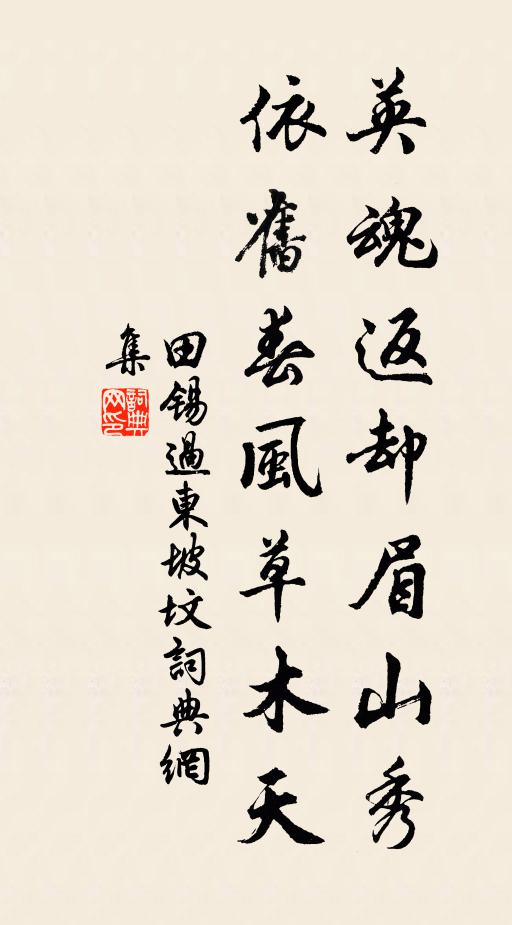 英魂返却眉山秀
依舊春風草木天
田錫過東坡坟詞典網
集
詞典
网印